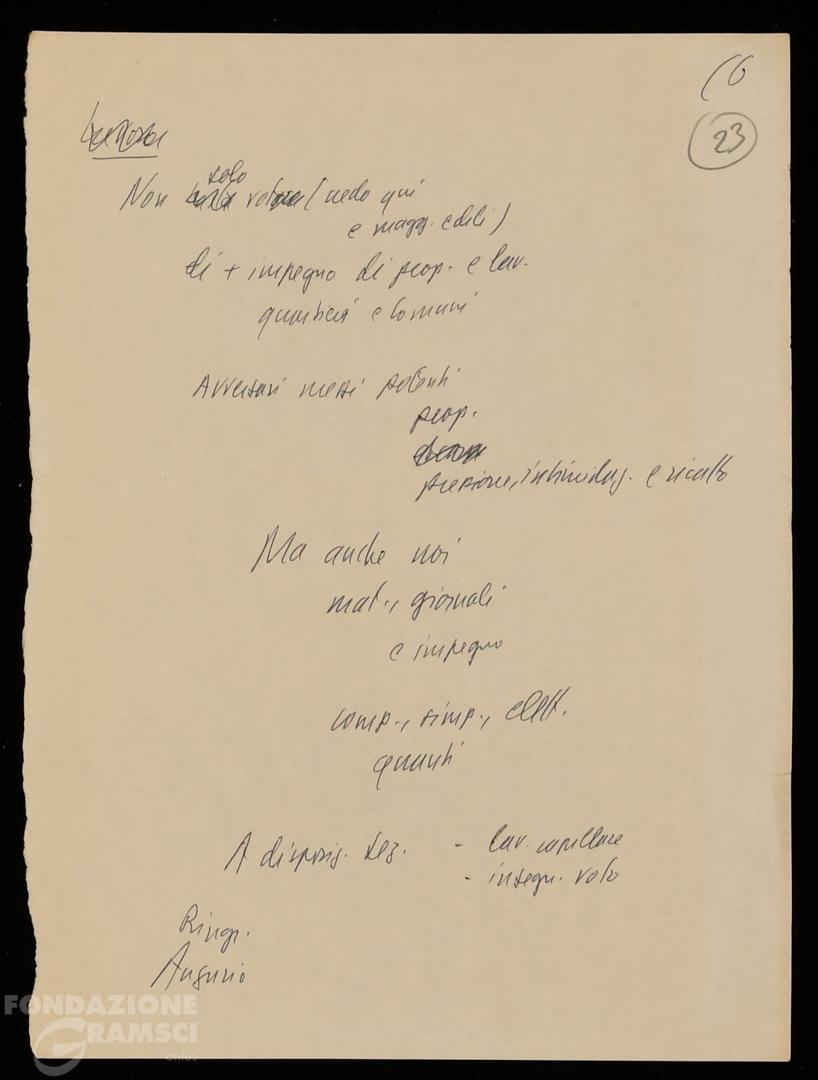 16
23
Non solo votare (vedo qui
e magg. edili)
di + impegno di prop. e lav.
quartieri e comuni
Avversari mezzi potenti
prop.
pressione, intimidaz. e ricatto
Ma anche noi
mat., giornali
e impegno
comp., simp., elett.
quanti
A disposiz. sez. - lav. capillare
- insegn. voto
Ringr.
Augurio
FONDAZIONE
GRAMSCI
onlus